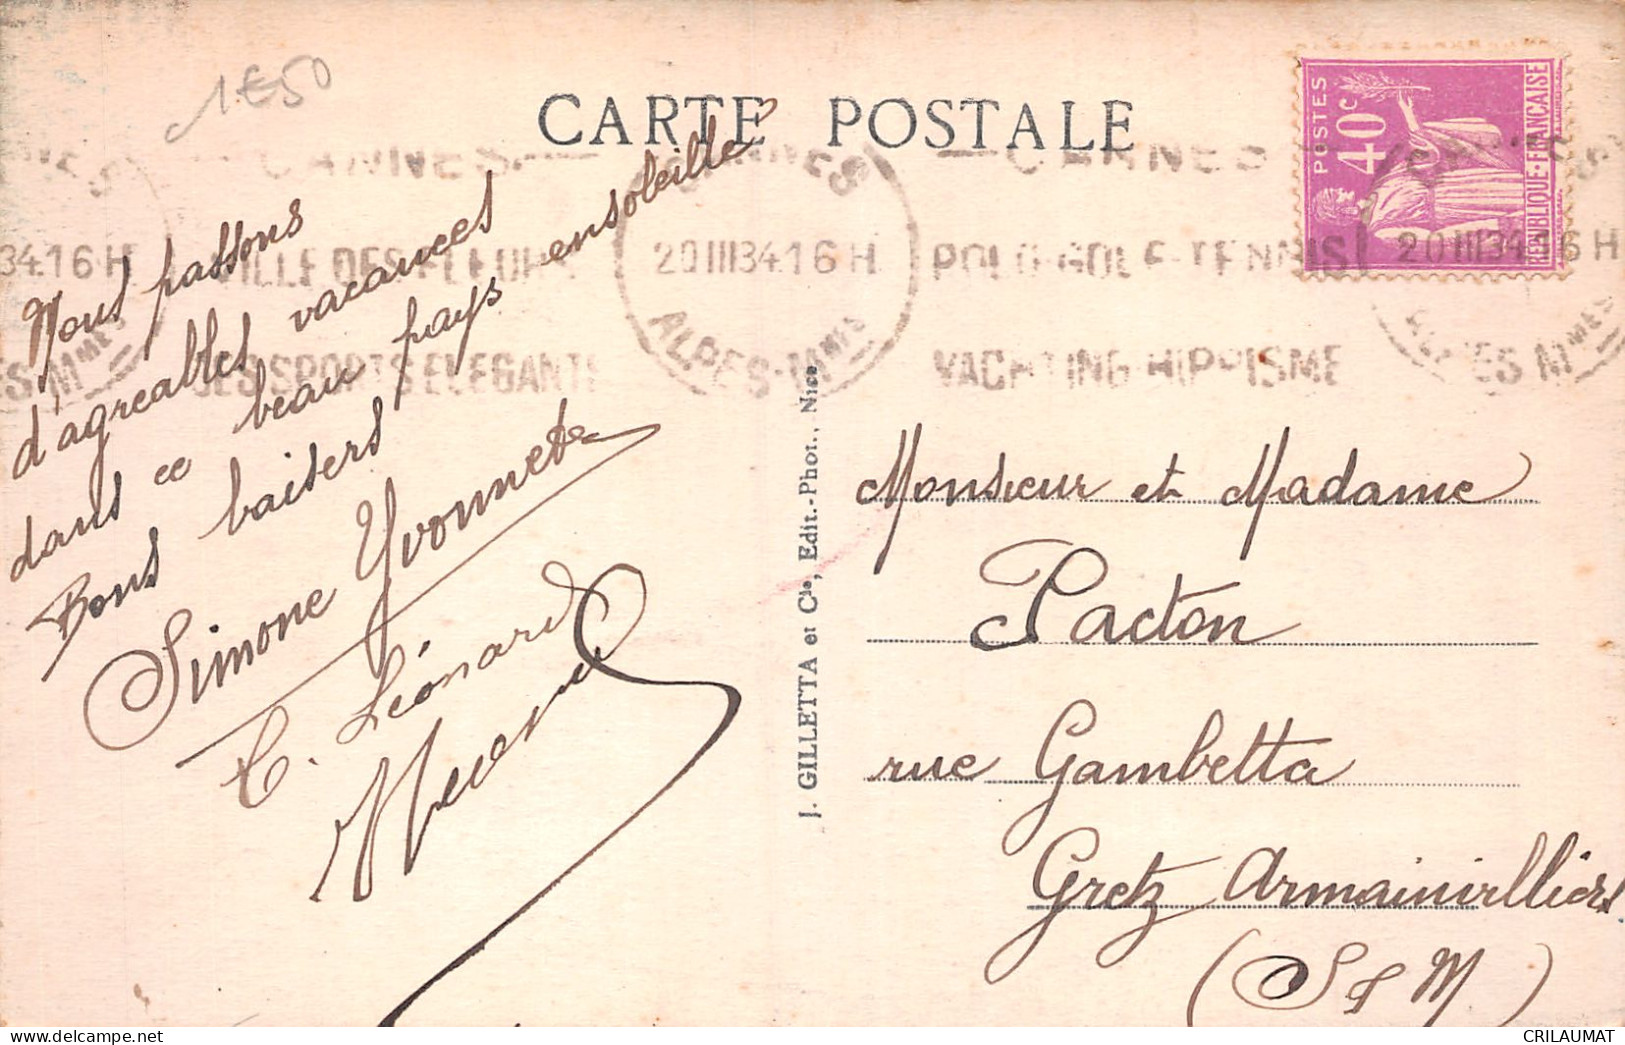 1€50
CARTE POSTALE
POSTES
40c
REPUBLIQUE·FRANÇAISE
CANNES
VILLE DES FLEURS
DES SPORTS ELEGANTS
CANNES
20 III 34 16 H
ALPES-Mmes
CANNES
POLO-GOLF-TENNIS
YACHTING-HIPPISME
CANNES
20 III 34 16 H
ALPES Mmes
34 16 H
Nous passons
d'agréables vacances
dans ce beau pays ensoleillé
Bons baisers
Simone Yvonnete
Léonard
J. GILLETTA et Cie, Edit.-Phot., Nice
Monsieur et Madame
Pacton
rue Gambetta
Gretz Armainvilliers
(S & M)
CRILAUMAT